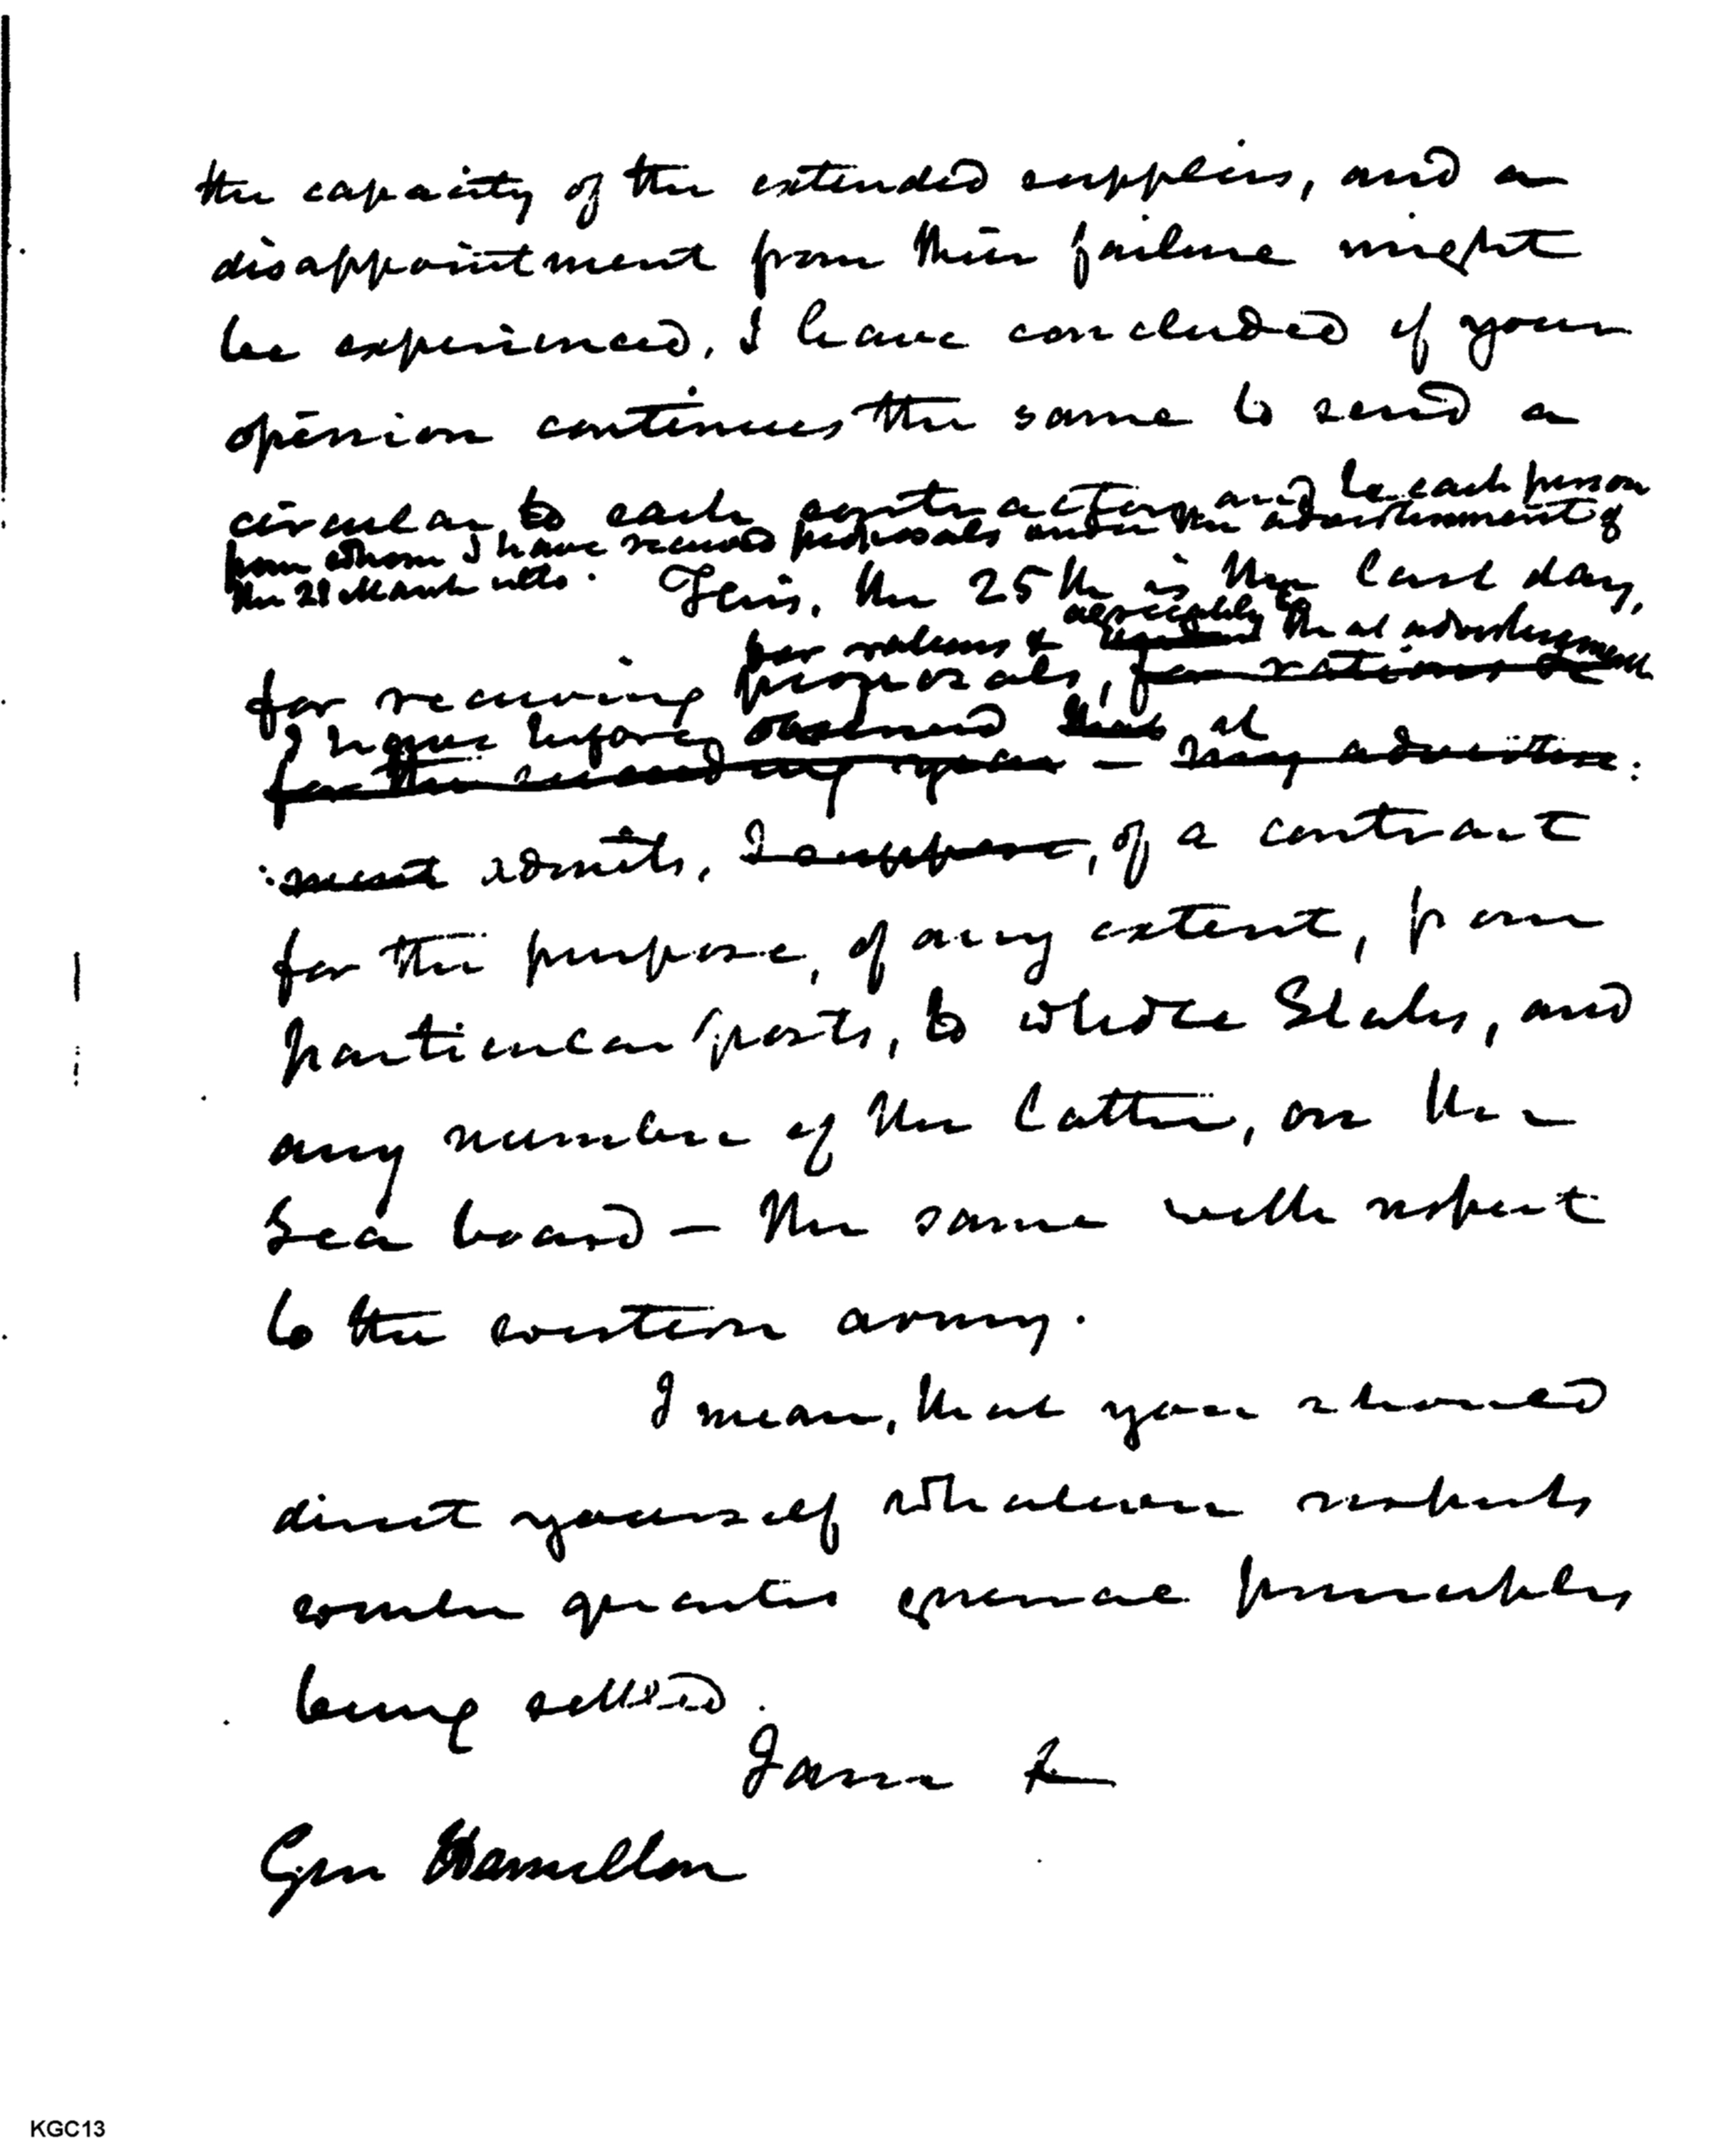 the capacity of the extended suppliers, and a
disappointment from their failure might
be experienced, I have concluded if your
opinion continues the same to send a
circular to each contractor and to each person
from whom I have received proposals under the advertisement of
the 28 March ulto. This, the 25th is the last day,
for rations & agreeably to the advertisement
for receiving proposals, for rations &c
I have before observed that it
for the succeeding year — my advertise:
:ment admits, I suppose, of a contract
for the purpose, of any extent, from
particular posts, to whole States, and
any number of the latter, on the
Sea board — the same with respect
to the western army.
I mean, that you should
direct yourself whatever respects
winter quarters general principles
being settled.
I am &
Gen Hamilton
KGC13